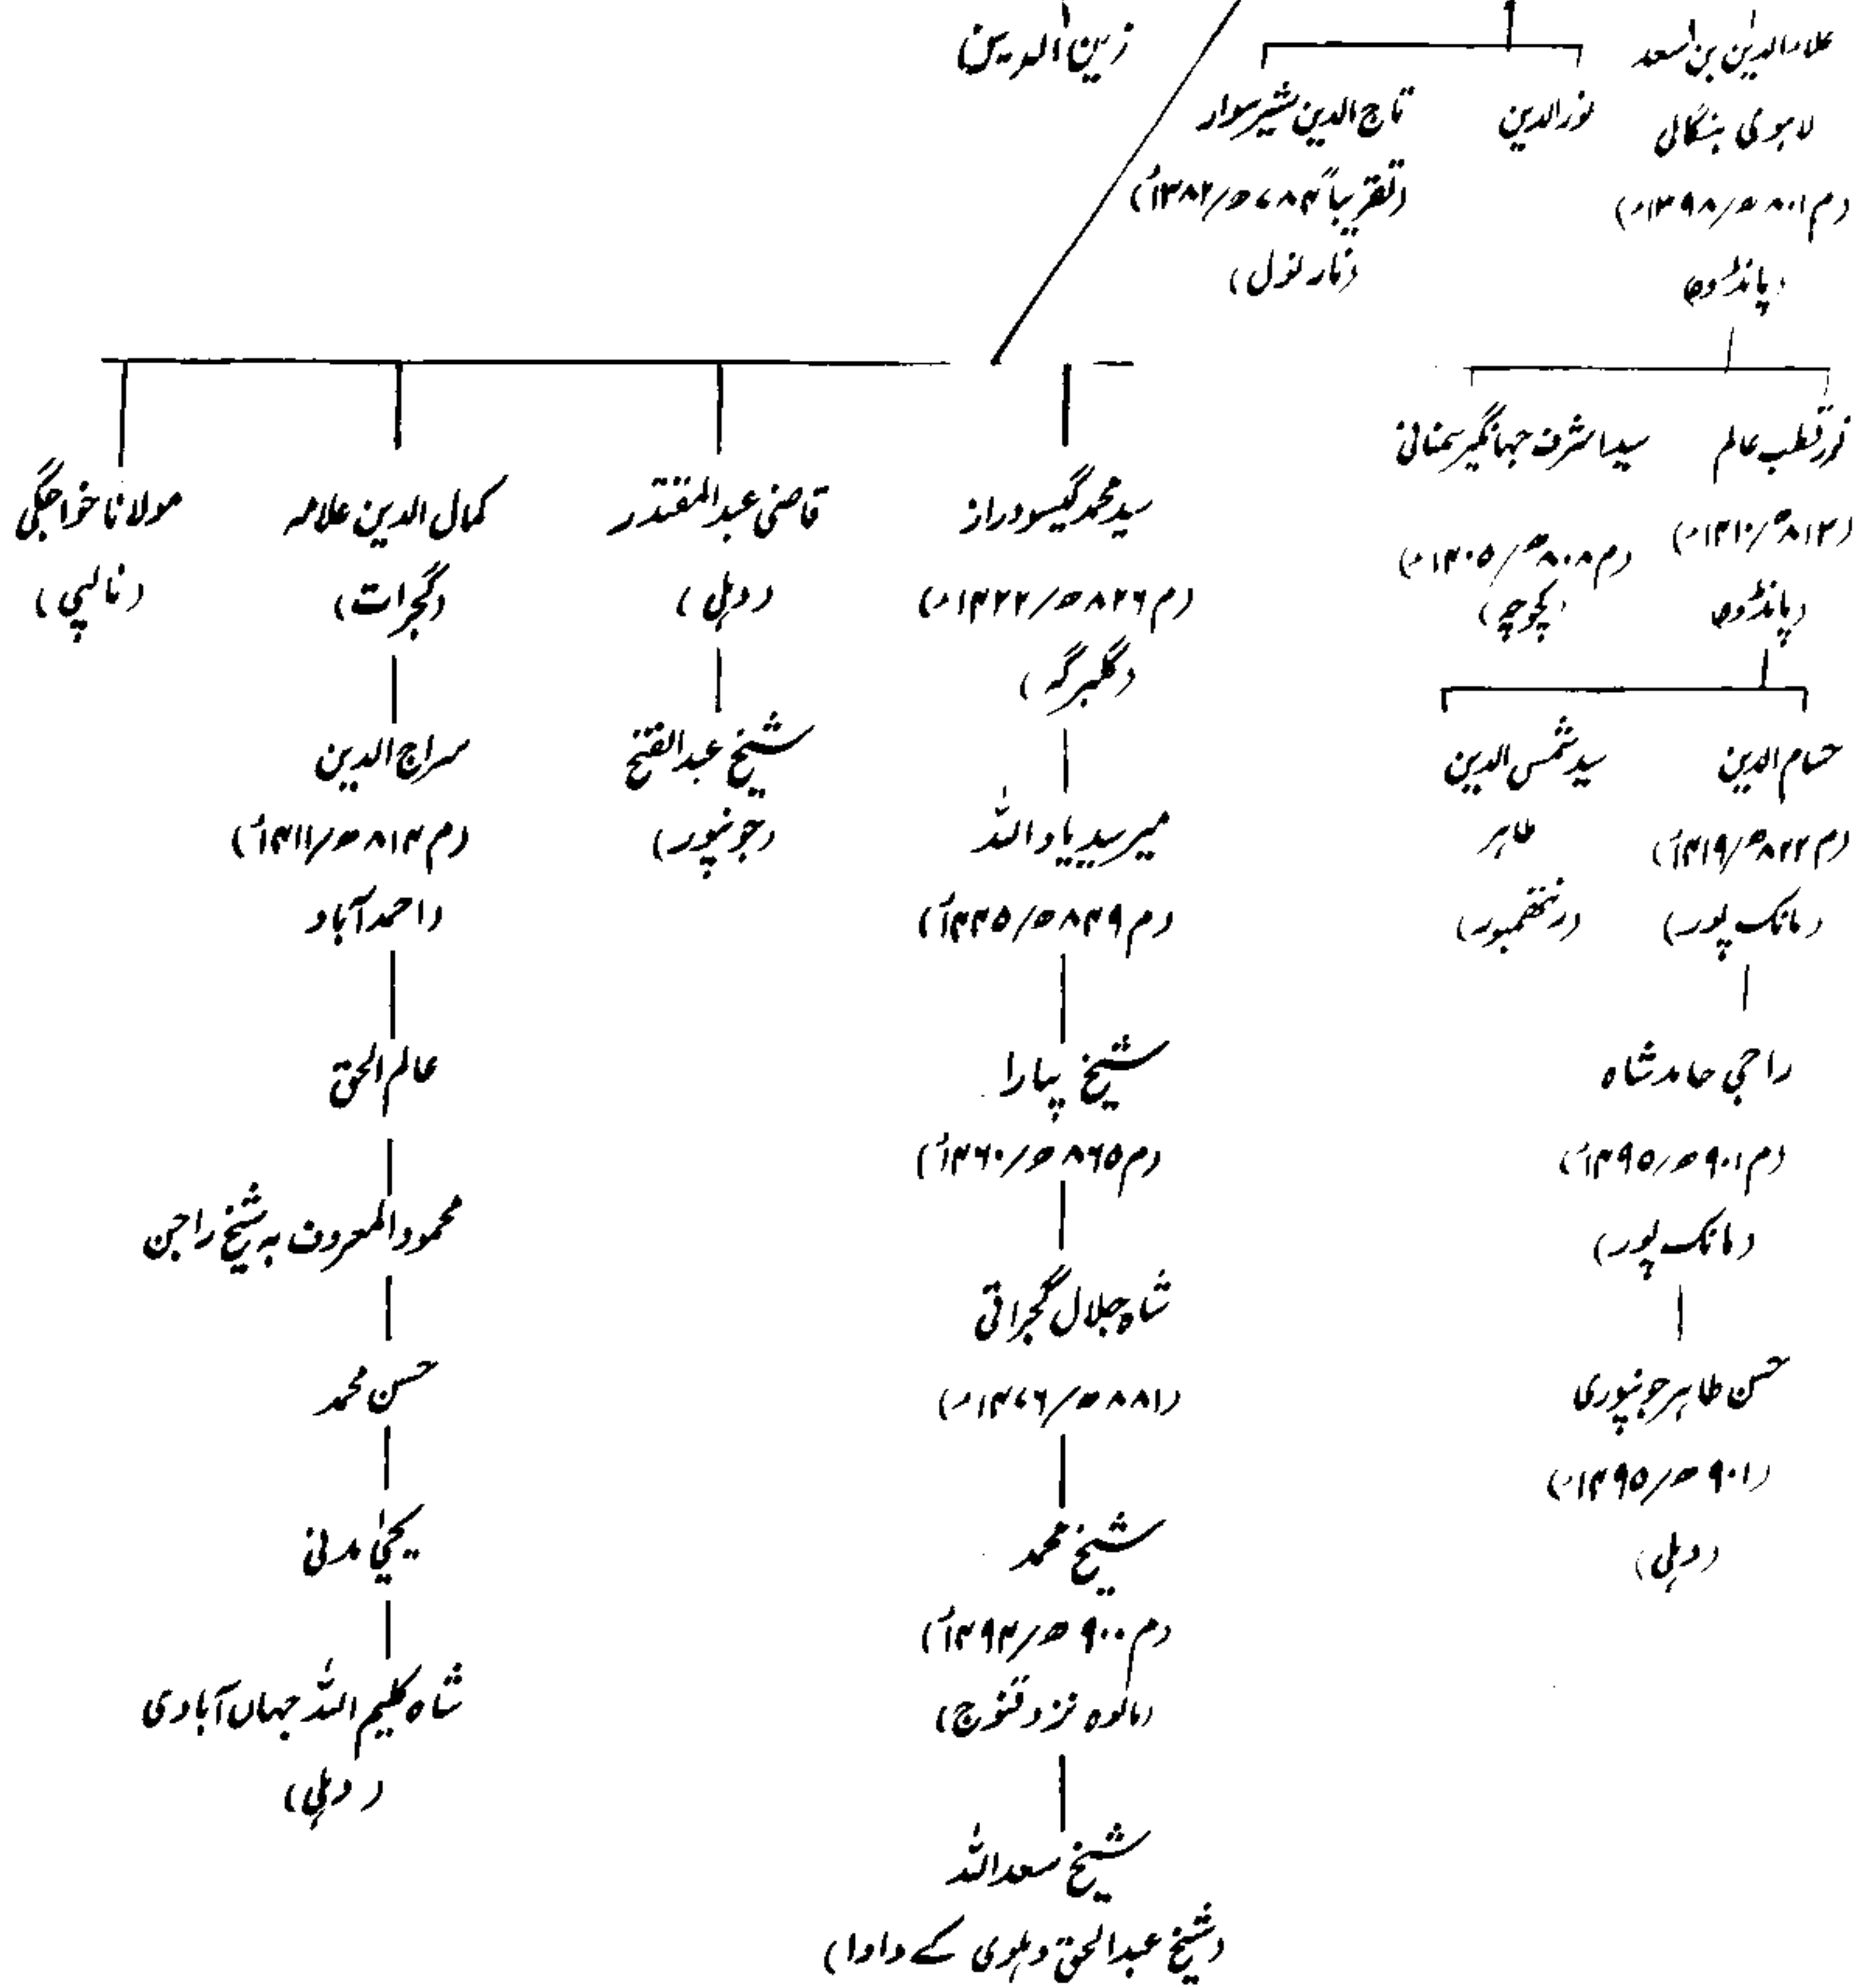 علاءالدین بن اسعد
لاہوری بنگالی
(م ۸۰۱ھ/۱۳۹۸ء)
(پانڈوہ)
نورالدین
تاج الدین شیر سوار
(تقریباً ۷۸۴ھ/۱۳۸۲ء)
(نارنول)
زین الدین
نور قطب عالم
(۸۱۳ھ/۱۴۱۰ء)
(پانڈوہ)
سید اشرف جہانگیر سمنانی
(م ۸۰۸ھ/۱۴۰۵ء)
(کچوچہ)
حسام الدین
(م ۸۲۲ھ/۱۴۱۹ء)
(مانک پور)
سید شمس الدین
طاہر
(رنتھمبور)
راجی حامد شاہ
(م ۹۰۱ھ/۱۴۹۵ء)
(مانک پور)
حسن طاہر جونپوری
(۹۰۱ھ/۱۴۹۵ء)
(دہلی)
سید محمد گیسودراز
(م ۸۲۶ھ/۱۴۲۲ء)
(گلبرگہ)
میر سید یاد اللہ
(م ۸۴۹ھ/۱۴۴۵ء)
شیخ پیارا
(م ۸۶۵ھ/۱۴۶۰ء)
شاہ جلال گجراتی
(۸۸۱ھ/۱۴۷۶ء)
شیخ محمد
(م ۹۰۰ھ/۱۴۹۴ء)
(مالوہ نزد قنوج)
شیخ سعد اللہ
(شیخ عبدالحق دہلوی کے دادا)
قاضی عبدالمقتدر
(دہلی)
شیخ عبدالفتح
(جونپور)
کمال الدین علامہ
(گجرات)
سراج الدین
(م ۸۱۴ھ/۱۴۱۱ء)
(احمد آباد
عالم الحق
محمود المعروف بہ شیخ راجن
حسن محمد
یحییٰ مدنی
شاہ کلیم اللہ جہاں آبادی
(دہلی)
مولانا خواجگی